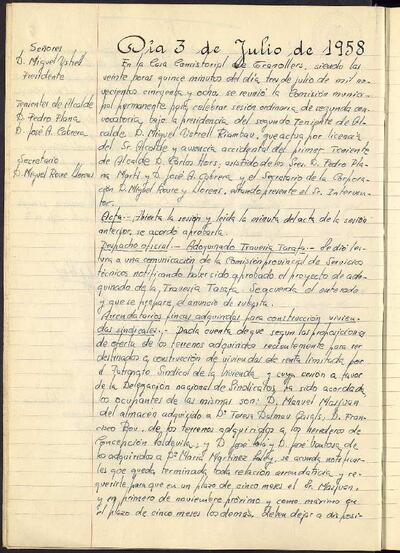 Señores
D. Miguel Votrell
Presidente
Tenientes de Alcalde
D. Pedro Plana
D. José A. Cabrera
Secretario
D. Miguel Roure Llorens
Día 3 de Julio de 1958
En la Casa Consistorial de Granollers, siendo las
veinte horas quince minutos del día tres de julio de mil no-
vecientos cincuenta y ocho, se reunió la Comisión munici-
pal permanente para celebrar sesión ordinaria de segunda con-
vocatoria, bajo la presidencia del segundo Teniente de Al-
calde D. Miguel Votrell Riambau, que actua por licencia
del Sr. Alcalde y ausencia accidental del primer Teniente
de Alcalde D. Carlos Hors, asistido de los Sres. D. Pedro Pla-
na Martí y D. José A. Cabrera y el Secretario de la Corpora-
ción D. Miguel Roure y Llorens, estando presente el Sr. Interven-
tor.
Acta.- Abierta la sesión y leida la minuta del acta de la sesión
anterior, se acordó aprobarla.
Despacho oficial.- Adoquinado Travesía Tarafa.- Se dió lec-
tura a una comunicación de la Comisión provincial de Servicios
técnicos notificando haber sido aprobado el proyecto de ado-
quinado de la Travesía Tarafa. Se acuerda el enterado
y que se prepare el anuncio de subasta.
Arrendatarios fincas adquiridas para construcción vivien-
das sindicales.- Dada cuenta de que segun las proposiciones
de oferta de los terrenos adquiridos recientemente para ser
destinados a construcción de viviendas de renta limitada por
el Patronato Sindical de la Vivienda y cuya cesión a favor
de la Delegación nacional de Sindicatos ha sido acordada,
los ocupantes de las mismas son: D. Manuel Masjuan
del almacen adquirido a Dª Teresa Dalmau D. Fran-
cisco Bou, de los terrenos adquiridos a los herederos de
Concepción y D. José y D. José Ventosa de
lo adquirido a Dª María Martínez se acuerda notificar-
les que queda terminada toda relación arrendaticia y re-
querirle para que en un plazo de cinco meses el Sr. Masjuan,
y en primero de noviembre próximo y como máximo en
el plazo de cinco meses los demás. Deben dejar a disposi-